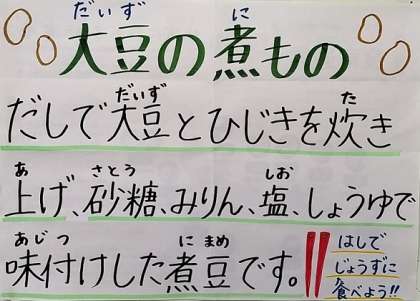 だいず に
大豆の煮もの
だいず た
だしで大豆とひじきを炊き
あ さとう しお
上げ、砂糖、みりん、塩、しょうゆで
あじつ に まめ
味付けした煮豆です。
はしで
じょうずに
食べよう!!